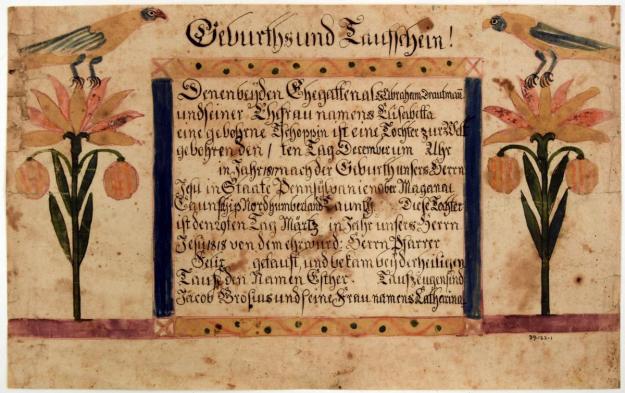 Geburths und Taufschein!
Denen beyden Ehegatten als Abraham Drautman
und seiner Ehefrau namens Elisabetta
eine gebohrne Tschoppin ist eine Tochter zur Welt
gebohren den 1 ten Tag December um Uhr
im Jahr 1817 nach der Geburth unsers Herrn
Jesu in Staate Pennsylvanien Ober
Taunschip Northumberland Caunty Diese Tochter
ist den 29ten Tag Märtz in Jahr unsers Herrn
Jesu 1818 von dem ehrwürd: Herrn Pfarrer
getauft, und bekam bey der heiligen
Taufe den Namen Esther. Taufzeugen sind
Jacob Brosius und seine Frau namens Catharina
39-122-1